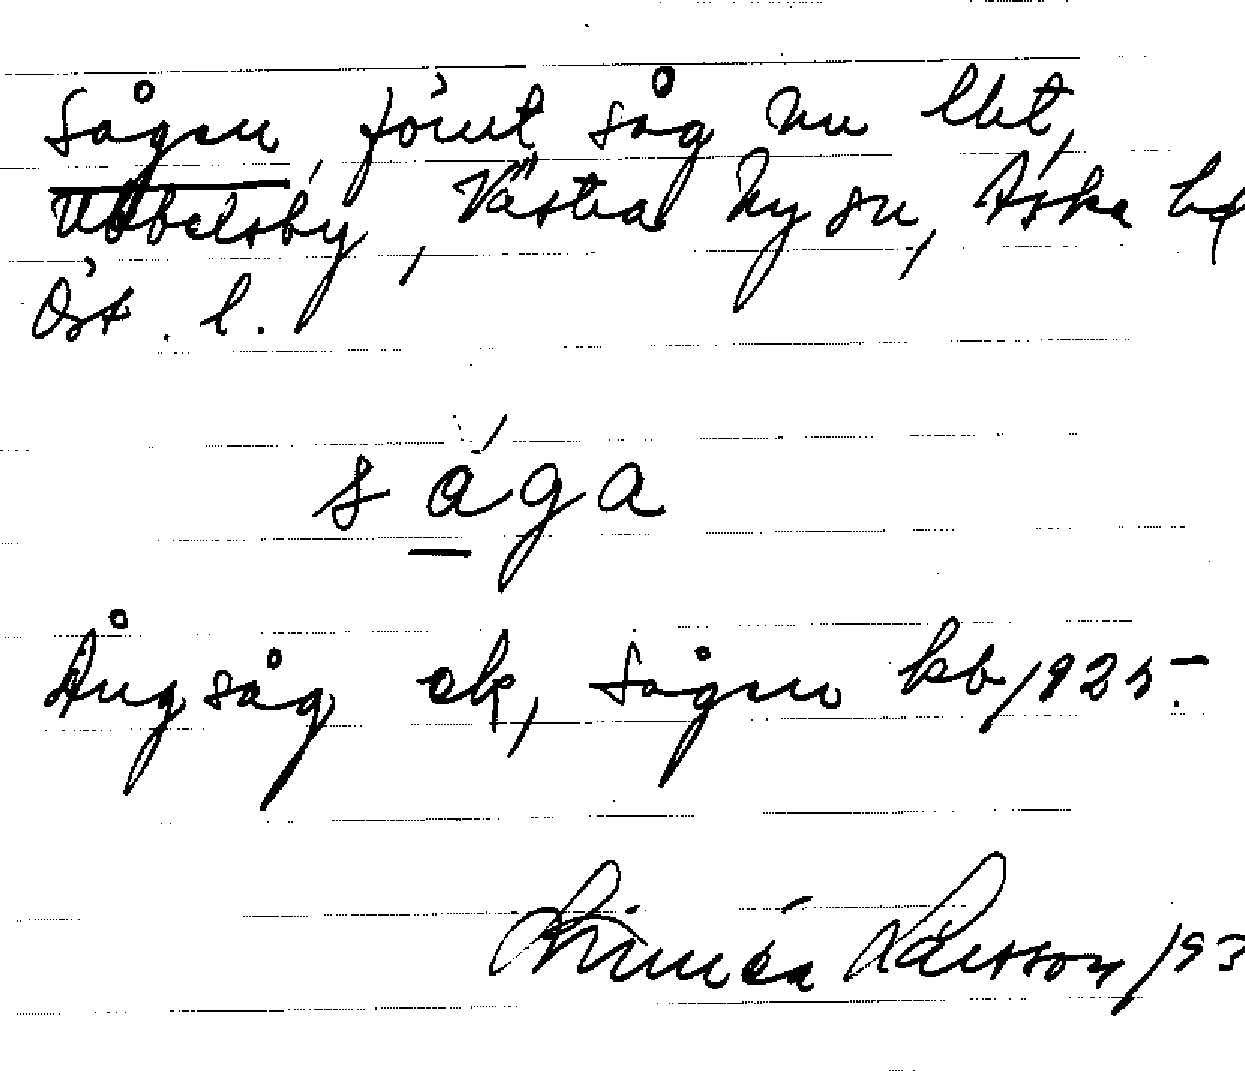 Sågen, förut såg nu lht,
Ubbelsby, Västra Ny sn, Aska hd
Öst. l.
sága
Ångsåg ek, Sågen kb 1925.
Linnéa Larsson 193